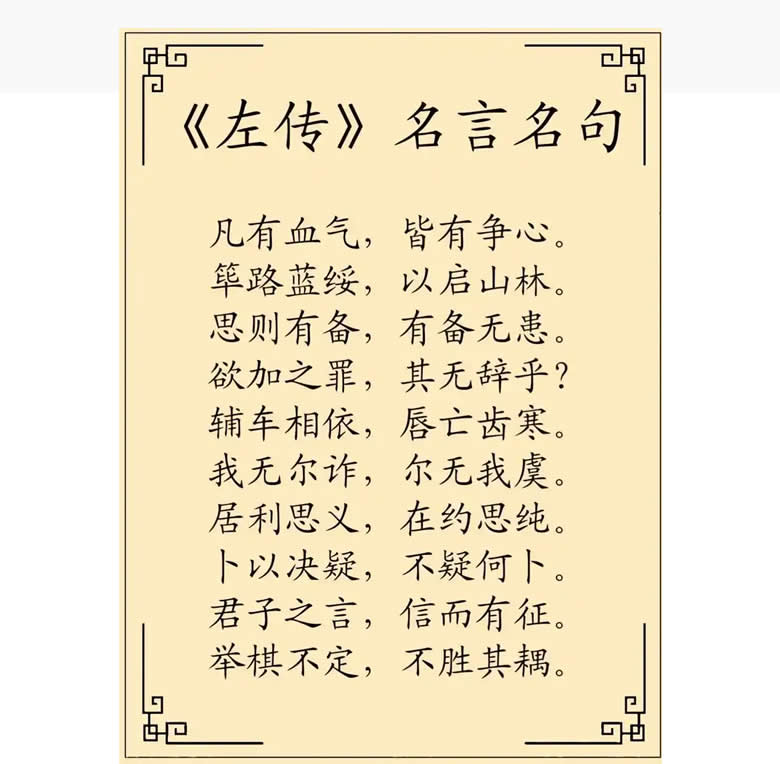 《左传》名言名句
凡有血气，皆有争心。
筚路蓝绥，以启山林。
思则有备，有备无患。
欲加之罪，其无辞乎？
辅车相依，唇亡齿寒。
我无尔诈，尔无我虞。
居利思义，在约思纯。
卜以决疑，不疑何卜。
君子之言，信而有征。
举棋不定，不胜其耦。